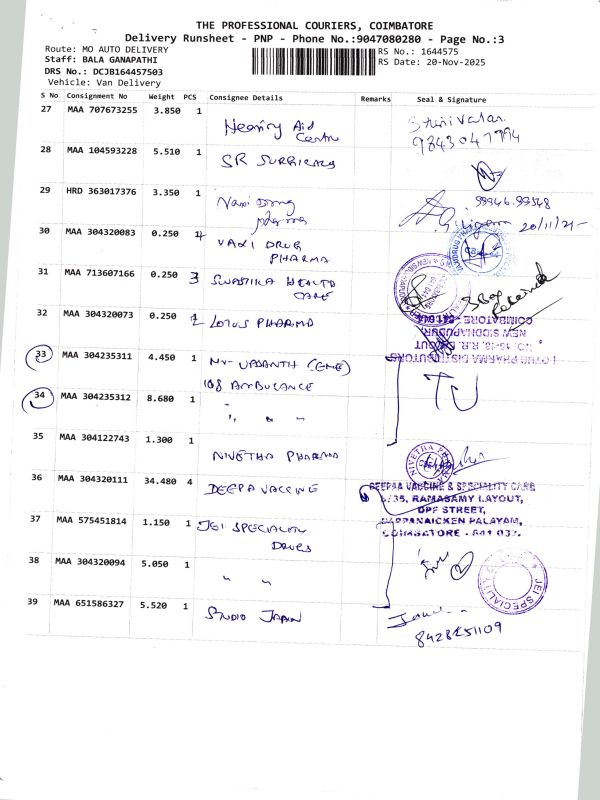 THE PROFESSIONAL COURIERS, COIMBATORE
Delivery Runsheet - PNP - Phone No.:9047080280 - Page No.:3
Route: MO AUTO DELIVERY
Staff: BALA GANAPATHI
DRS No.: DCJB164457503
Vehicle: Van Delivery
RS No.: 1644575
RS Date: 20-Nov-2025
S No Consignment No Weight PCS Consignee Details Remarks Seal & Signature
27 MAA 707673255 3.850 1 Hearing Aid Centre
28 MAA 104593228 5.510 1 SR SURGICALS
29 HRD 363017376 3.350 1 Vaxi Drug pharma 99946.99548
20/11/25
30 MAA 304320083 0.250 VAXI DRUG PHARMA
31 MAA 713607166 0.250 3 SWASTIKA HEALTH CARE
32 MAA 304320073 0.250 LOTUS PHARMA
LOTUS PHARMA DISTRIBUTORS
NEW SIDDHAPUDUR
COIMBATORE
33 MAA 304235311 4.450 1 VASANTH
108 AMBULANCE
34 MAA 304235312 8.680 1 " " "
TU
35 MAA 304122743 1.300 1 NIVETHA PHARMA
NIVETHA PHARMA
36 MAA 304320111 34.480 4 DEEPA VACCINE
DEEPAA VACCINE & SPECIALITY CARE
RAMASAMY LAYOUT,
OPF STREET,
PAPPANAICKEN PALAYAM,
COIMBATORE - 641 037.
37 MAA 575451814 1.150 1 JEI SPECIALITY DRUGS
38 MAA 304320094 5.050 1 " "
JEI SPECIALITY
39 MAA 651586327 5.520 1 STUDIO JAPAN